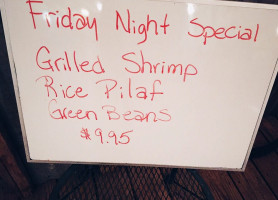 Friday Night Special
Grilled Shrimp
Rice Pilaf
Green Beans
$9.95